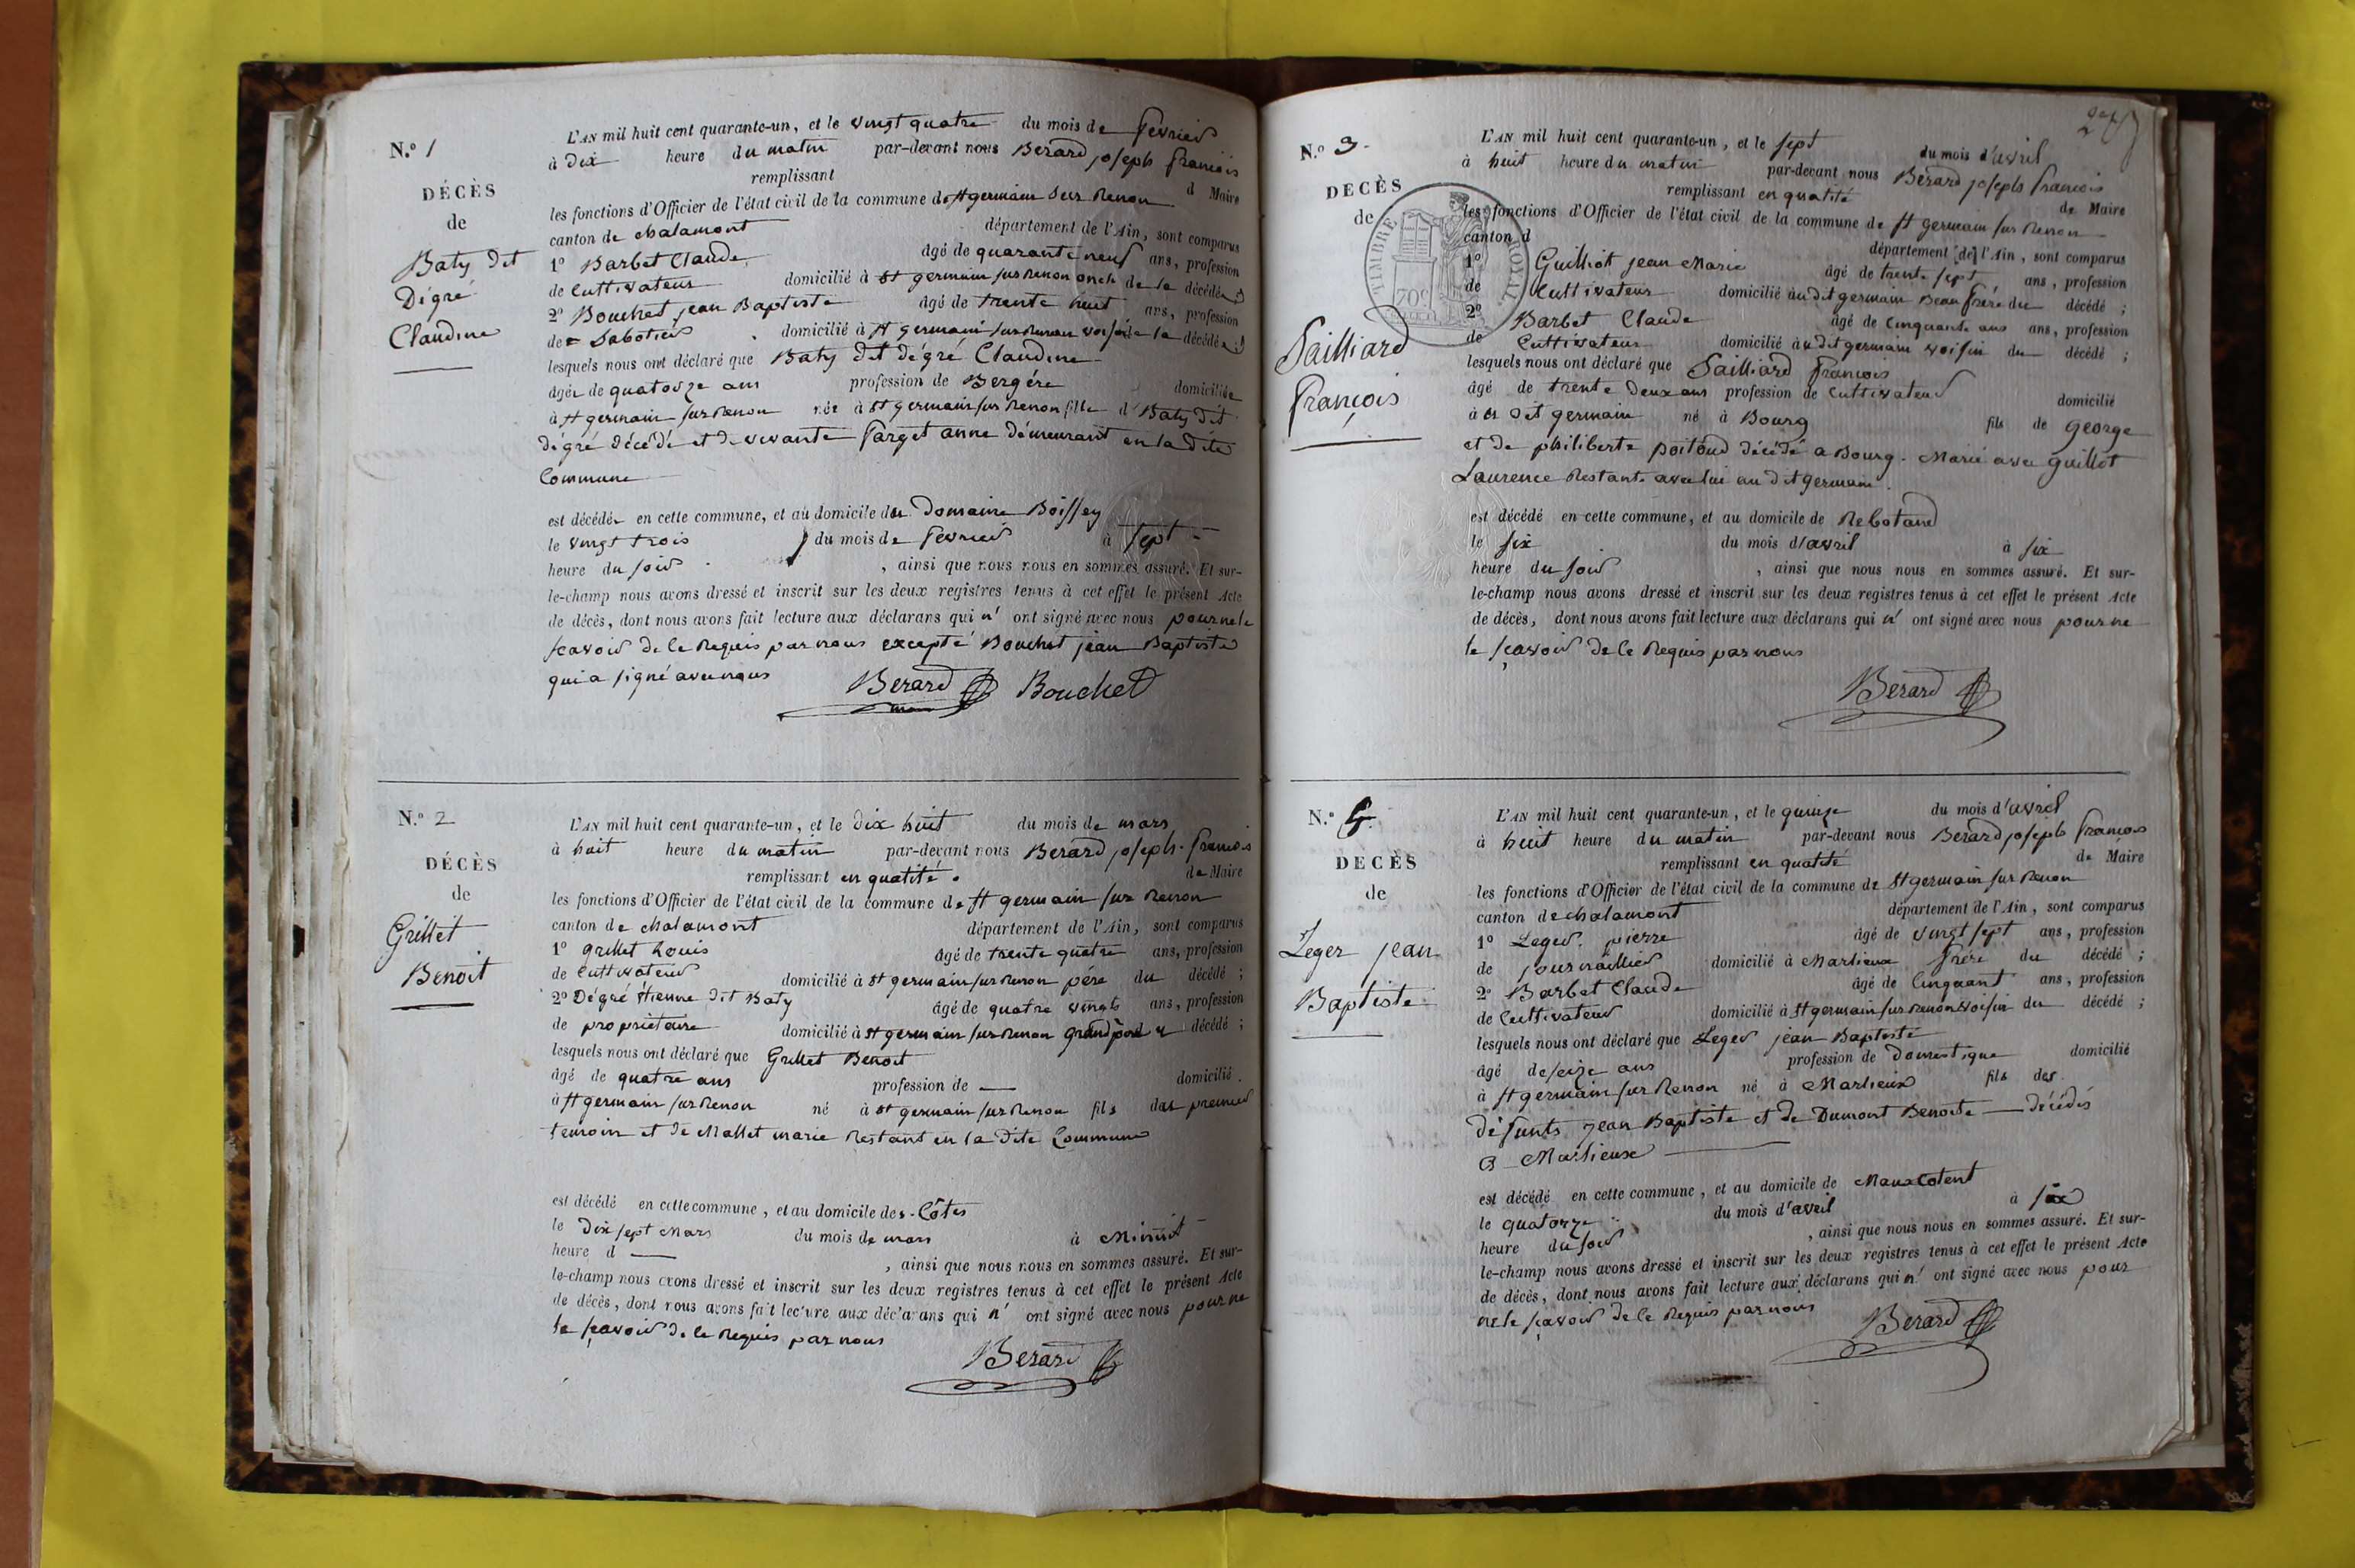 N.º 1
DÉCÈS
de
Baty dit
Dégré
Claudine
L'AN mil huit cent quarante-un, et le vingt quatre du mois de fevrier
à dix heure du matin par-devant nous Berard joseph francois
remplissant d Maire
les fonctions d'Officier de l'état civil de la commune de St germain sur Renon
canton de chalamont département de l'Ain, sont comparus
1º Barbet Claude âgé de quarante neuf ans, profession
de Cultivateur domicilié à St germain sur Renon oncle de la décédée ;
2º Bouchet jean Baptiste âgé de trente huit ans, profession
de Sabotier domicilié à St germain sur Renon voisin de la décédée ;
lesquels nous ont déclaré que Baty dit dégré Claudine
âgée de quatorze ans profession de Bergére domiciliée
à St germain sur Renon née à St germain sur Renon fille d Baty dit
dégré décédé et de vivante Farget anne démeurant en la dite
Commune
est décédée en cette commune, et au domicile du Domaine Boissey
le vingt trois du mois de fevrier à sept
heure du soir , ainsi que nous nous en sommes assuré. Et sur-
le-champ nous avons dressé et inscrit sur les deux registres tenus à cet effet le présent Acte
de décès, dont nous avons fait lecture aux déclarans qui n' ont signé avec nous pour ne le
scavoir de le Requis par nous excepté Bouchet jean Baptiste
qui a signé avec nous Berard Bouchet
N.º 2
DÉCÈS
de
Grillet
Benoit
L'AN mil huit cent quarante-un, et le dix huit du mois de mars
à huit heure du matin par-devant nous Berard joseph francois
remplissant en qualité de Maire
les fonctions d'Officier de l'état civil de la commune de St germain sur Renon
canton de chalamont département de l'Ain, sont comparus
1º grillet Louis âgé de trente quatre ans, profession
de Cultivateur domicilié à St germain sur Renon pére du décédé ;
2º Dégré étienne dit Baty âgé de quatre vingts ans, profession
de propriétaire domicilié à St germain sur Renon grand père décédé ;
lesquels nous ont déclaré que Grillet Benoit
âgé de quatre ans profession de — domicilié
à St germain sur Renon né à St germain sur Renon fils du premier
temoin et de Mallet marie Restant en la dite Commune
est décédé en cette commune, et au domicile des Côtes
le dix sept Mars du mois de mars à Minuit
heure d — , ainsi que nous nous en sommes assuré. Et sur-
le-champ nous avons dressé et inscrit sur les deux registres tenus à cet effet le présent Acte
de décès, dont nous avons fait lecture aux déclarans qui n' ont signé avec nous pour ne
le sçavoir de le Requis par nous
Berard
N.º 3.
DÉCÈS
de
Sailliard
François
TIMBRE ROYAL
70c
L'AN mil huit cent quarante-un, et le sept du mois d'avril
à huit heure du matin par-devant nous Berard joseph francois
remplissant en qualité de Maire
les fonctions d'Officier de l'état civil de la commune de St germain sur Renon
canton d département de l'Ain, sont comparus
1º Guilliot jean Marie âgé de trente sept ans, profession
de Cultivateur domicilié au dit germain Beau frére du décédé ;
2º Barbet Claude âgé de Cinquante ans ans, profession
de Cultivateur domicilié au dit germain voisin du décédé ;
lesquels nous ont déclaré que Sailliard françois
âgé de trente deux ans profession de Cultivateur domicilié
à dit germain né à Bourg fils de george
et de philiberte poitoud décédé a Bourg. Marié avec guillot
Laurence Restante avec lui au dit germain.
est décédé en cette commune, et au domicile de Rebotand
le six du mois d'avril à six
heure du soir , ainsi que nous nous en sommes assuré. Et sur-
le-champ nous avons dressé et inscrit sur les deux registres tenus à cet effet le présent Acte
de décès, dont nous avons fait lecture aux déclarans qui n' ont signé avec nous pour ne
le sçavoir de le Requis par nous
Berard
N.º 4.
DÉCÈS
de
Leger jean
Baptiste
L'AN mil huit cent quarante-un, et le quinze du mois d'avril
à huit heure du matin par-devant nous Berard joseph francois
remplissant en qualité de Maire
les fonctions d'Officier de l'état civil de la commune de St germain sur Renon
canton de chalamont département de l'Ain, sont comparus
1º Leger pierre âgé de vingt sept ans, profession
de journallier domicilié à Marlieux frére du décédé ;
2º Barbet Claude âgé de Cinquant ans, profession
de Cultivateur domicilié à St germain sur Renon voisin du décédé ;
lesquels nous ont déclaré que Leger jean Baptiste
âgé de seize ans profession de Domestique domicilié
à St germain sur Renon né à Marlieux fils des
défunts jean Baptiste et de Dumont Benoite — décédés
a Marlieux
est décédé en cette commune, et au domicile de Mauxcotent
le quatorze du mois d'avril à six
heure du soir , ainsi que nous nous en sommes assuré. Et sur-
le-champ nous avons dressé et inscrit sur les deux registres tenus à cet effet le présent Acte
de décès, dont nous avons fait lecture aux déclarans qui n' ont signé avec nous pour
ne le sçavoir de le Requis par nous Berard